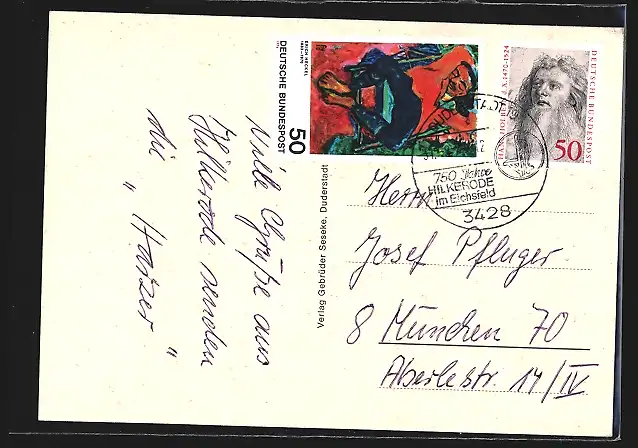 ERICH HECKEL
1883-1970
DEUTSCHE BUNDESPOST
50
HANS HOLBEIN D.Ä. 1470-1524
DEUTSCHE BUNDESPOST
50
DUDERSTADT
750 Jahre
HILKERODE
im Eichsfeld
3428
Herrn
Josef Pfluger
8 München 70
Aberlestr. 14/IV
Verlag Gebrüder Seseke, Duderstadt
Viele Grüße aus
Hilkerode senden
die „Harzer"